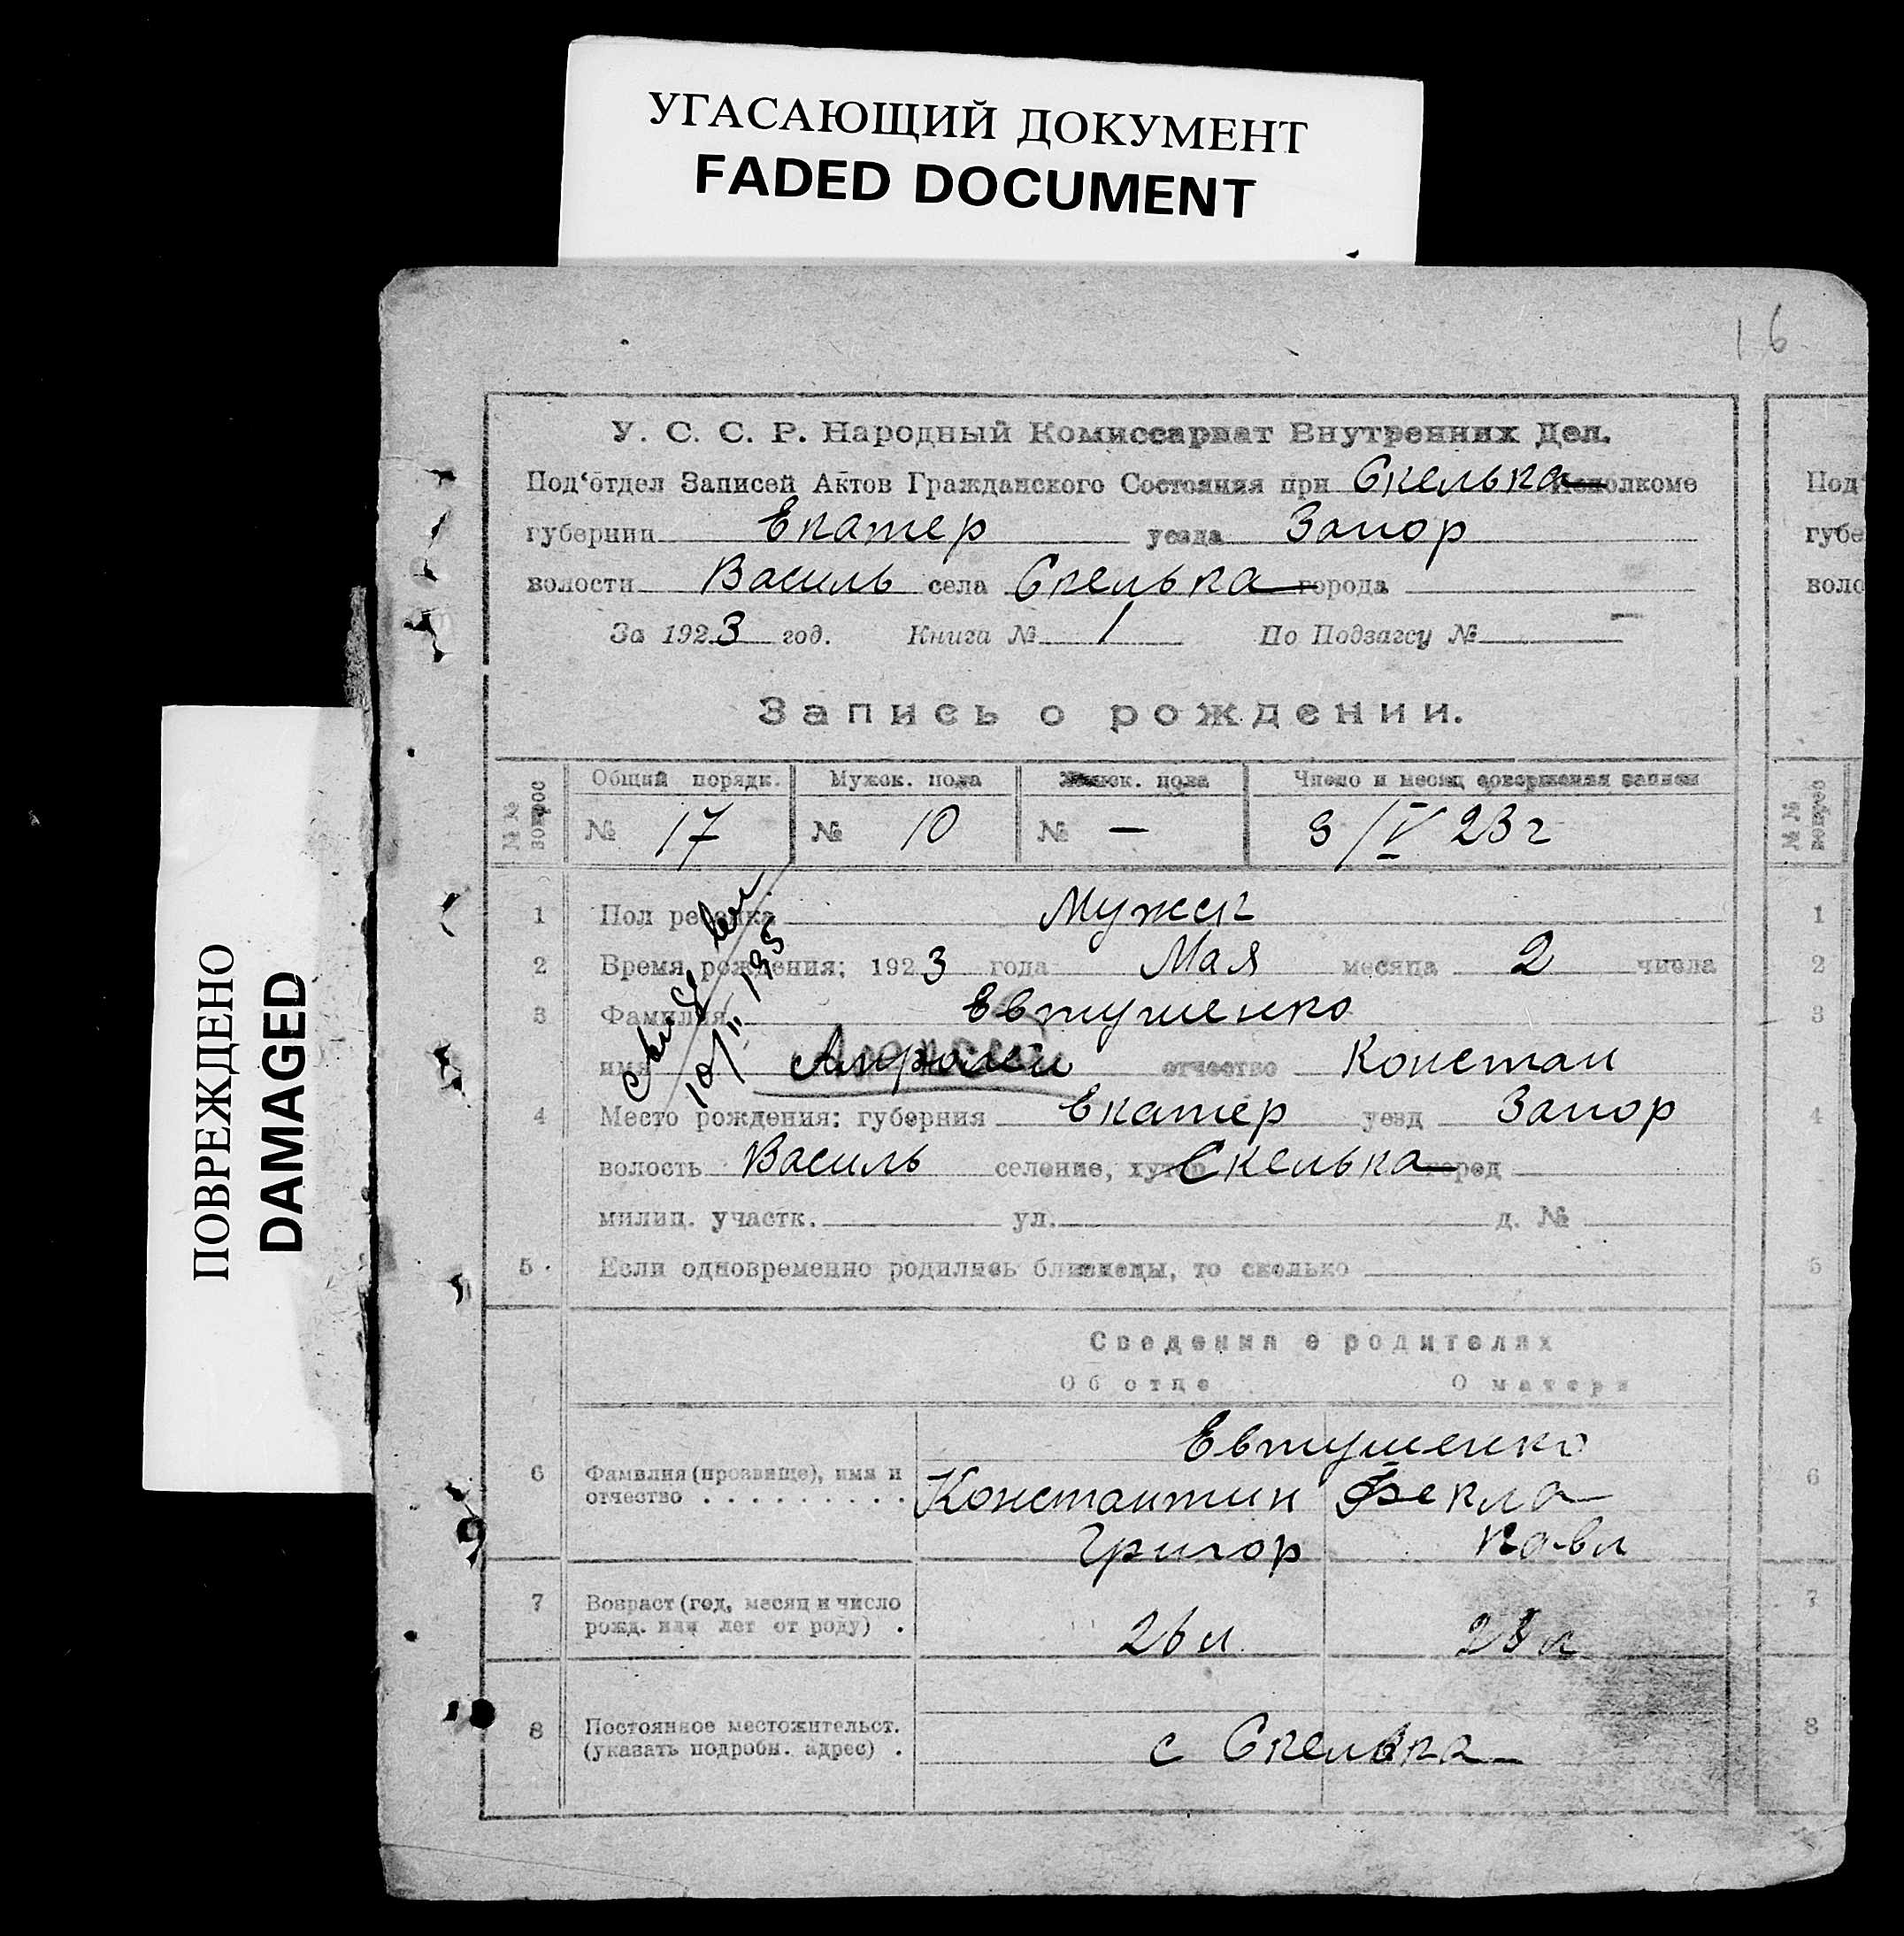 УГАСАЮЩИЙ ДОКУМЕНТ
FADED DOCUMENT
ПОВРЕЖДЕНО
DAMAGED
16
У. С. С. Р. Народный Комиссариат Внутренних Дел.
Под‘отдел Записей Актов Гражданского Состояния при Скелька Исполкоме
губернии Екатер уезда Запор
волости Василь села Скелька города
За 1923 год. Книга № 1 По Подзагсу № —
Запись о рождении.
№ № вопрос Общий порядк. Мужск. пола Женск. пола Число и месяц совершения записи
№ 17 № 10 № — 3/V 23 г
1 Пол ребенка Мужск
2 Время рождения: 1923 года Мая месяца 2 числа
3 Фамилия Евтушенко
имя отчество Констан
4 Место рождения: губерния Екатер уезд Запор
волость Василь селение, хутор Скелька город
милиц. участк. ул. д. №
5 Если одновременно родились близнецы, то сколько
Сведения о родителях
Об отце О матери
Евтушенко
6 Фамилия (прозвище), имя и отчество Константин Фекла
Григор Павл
7 Возраст (год, месяц и число рожд. или лет от роду) 26 л
8 Постоянное местожительст. (указать подробн. адрес) с Скелька
Под‘
губе
воло
№ № вопрос
1
2
3
4
5
6
7
8